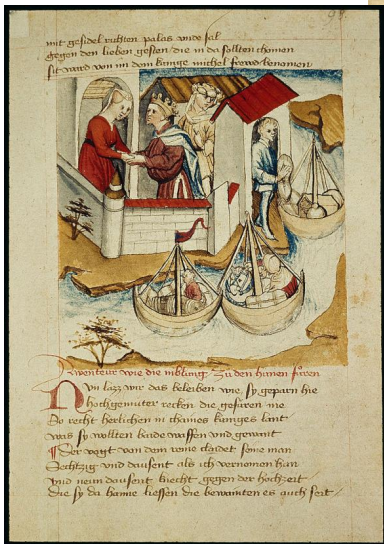 mit gesidel richten palas unde sal
gegen den lieben gesten die in da sollten chomen
sit ward von im dem kunige michel frewd benomen
Awenteur wie die niblung zu den hunen furen
Nun lazz wir das beleiben wie sy geparn hie
hochgemuter recken die gefuren nie
So recht herlichen in chaines kuniges lant
was sy wollten baide waffen und gewant
Der vogt von dem reine claidet seine man
Sechtzig und dausent als ich vernomen han
und neun dausent knecht gegen der hochzeit
die sy da haime liessen die bewainten es auch seit